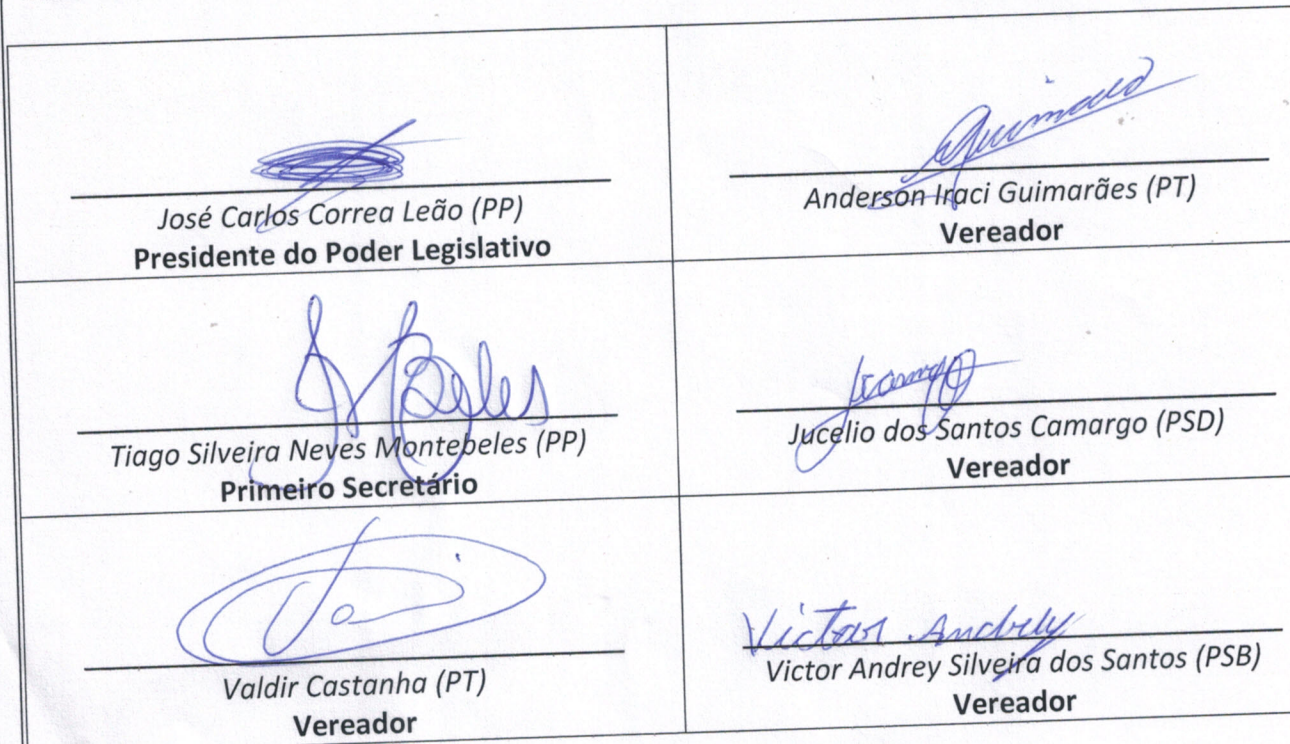 José Carlos Correa Leão (PP)
Presidente do Poder Legislativo
Guimarães
Anderson Iraci Guimarães (PT)
Vereador
Beles
Tiago Silveira Neves Montebeles (PP)
Primeiro Secretário
Jucelio dos Santos Camargo (PSD)
Vereador
Valdir Castanha (PT)
Vereador
Victor Andrey
Victor Andrey Silveira dos Santos (PSB)
Vereador